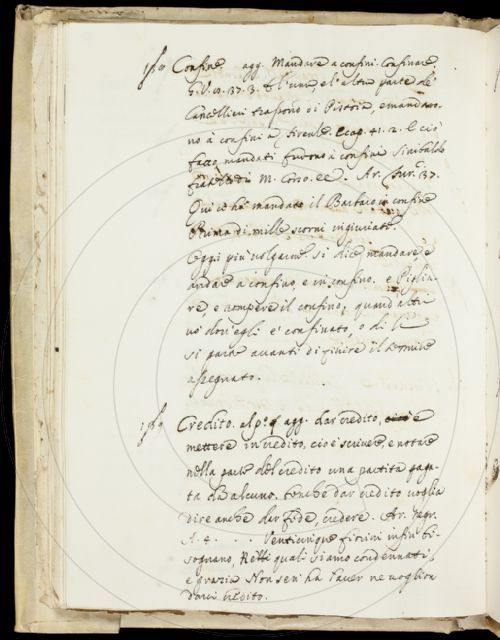 Confine, agg. Mandare a confini. Confinare,
G. V. 37. 3. E l'uno, e l'altra parte de'
Cancellieri trassono di Pistoia, e mandaro-
no a confini a Firenze. E cap. 41. 2. E ciò
fatto mandati furono a confini Sinibaldo
fratello di M. Corso. ec. Ar. Fur. 37.
Qui ci ha mandato il Barbaro in confine
Prima di mille scorni ingiuriate.
Oggi più volgarmte. si dice mandare, e
andare a confino, e in confino. e Piglia-
re, e rompere il confino, quand' altri
va dov' egli e' confinato, o di lì
si parte avanti di finire il termine
assegnato.
Credito. al p.o agg. dar credito, e
mettere in credito, cioè scrivere, e notare
nella parte del credito una partita paga-
ta da alcuno. benche dar credito voglia
dire anche dar fede, credere. Ar. Negr.
A. 4. . . . Venticinque fiorini infin bi-
sognano, Relli quali siamo condennati,
e grazia Non sen' ha l'aver ne voglion
darci credito.